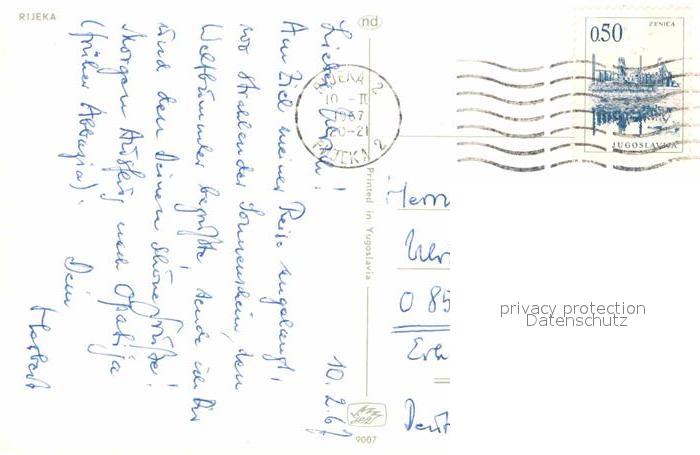 RIJEKA
nd
10.2.67
Lieber Ulrich!
Am Ziel meiner Reise angelangt,
wo strahlender Sonnenschein, den
Weltbummler begrüßte, sende ich Dir
und den Deinen schöne Grüße!
Morgen Ausflug nach Opatija
(früher Abbazia).
Dein
Herbert
Printed in Yugoslavia
9007
RIJEKA 2
10 -II
1967
20-21
RIJEKA 2
ZENICA
0.50
JUGOSLAVIJA
Herrn
Ulri
O 85
Erl
Deut
privacy protection
Datenschutz